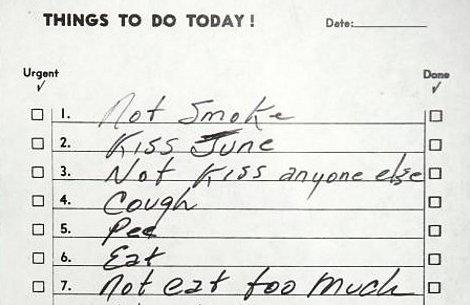 THINGS TO DO TODAY! Date:
Urgent Done
1. Not Smoke
2. Kiss June
3. Not Kiss anyone else
4. Cough
5. Pee
6. Eat
7. Not eat too much